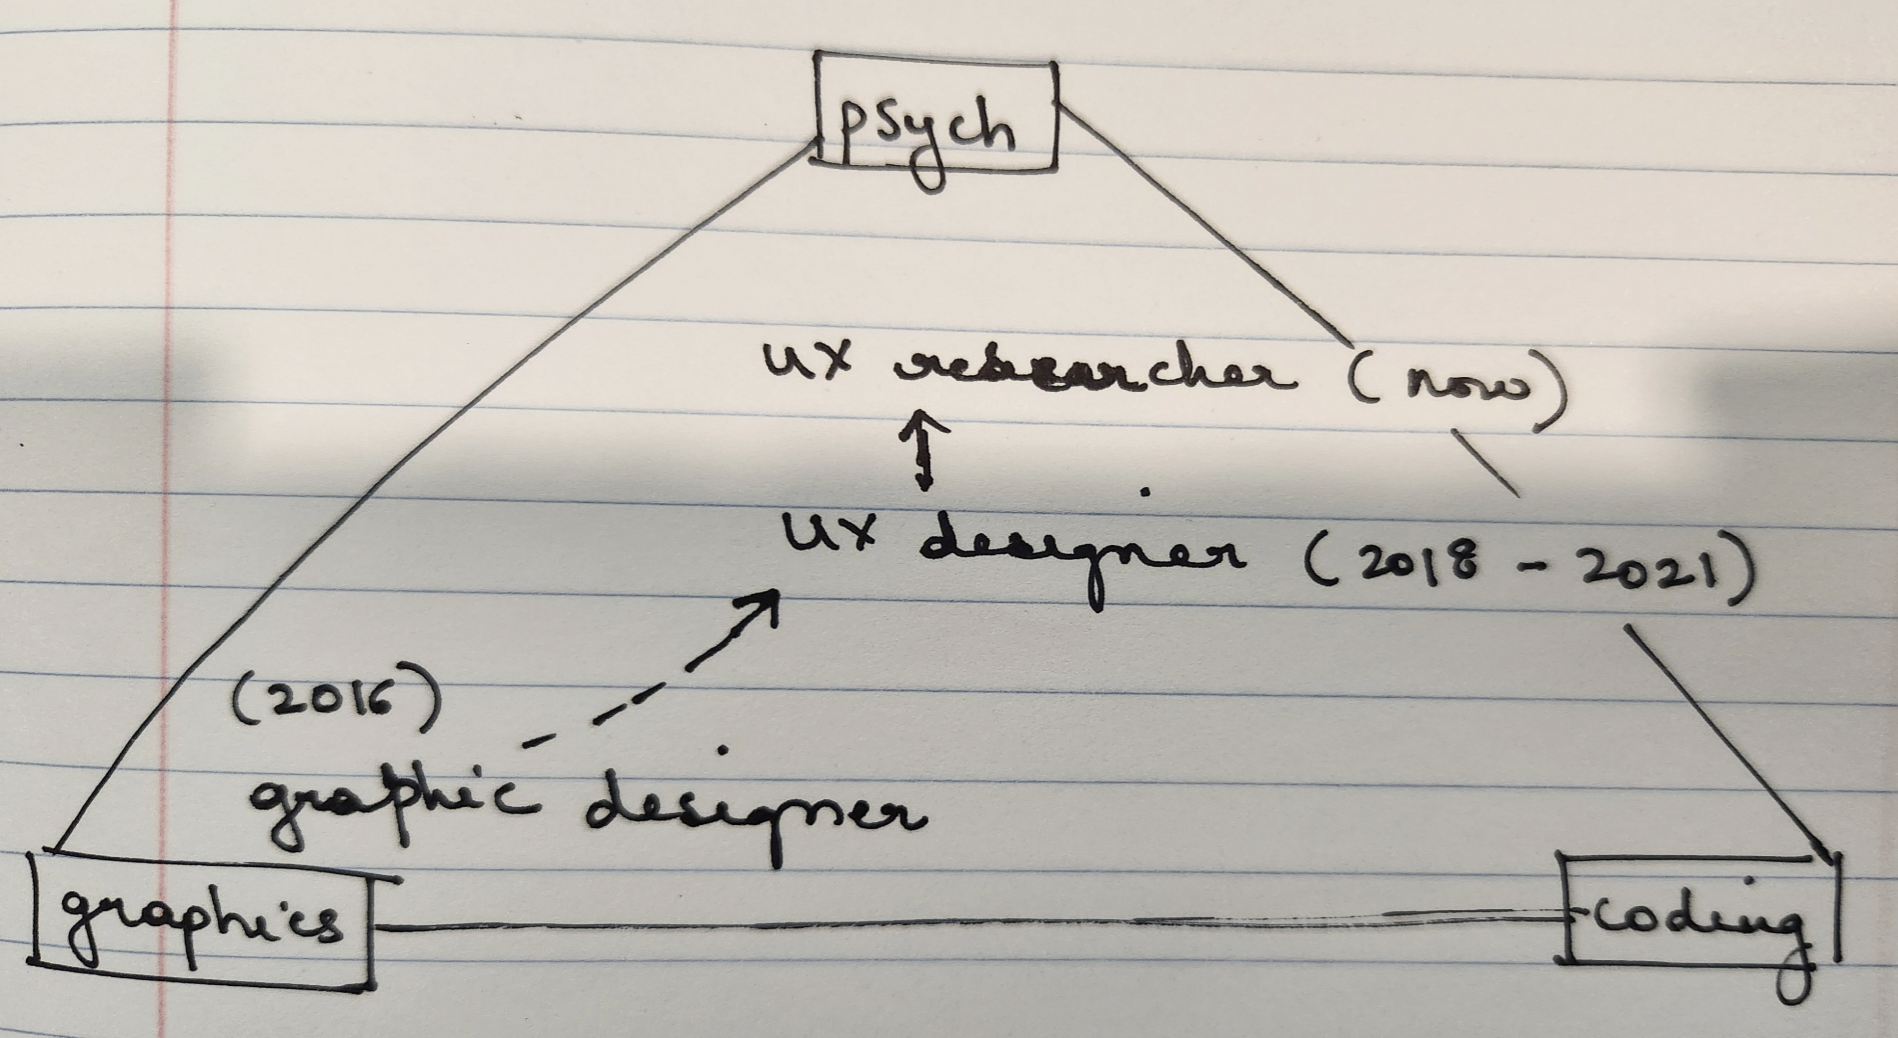 psych
UX researcher (now)
UX designer (2018 - 2021)
(2016)
graphic designer
graphics
coding